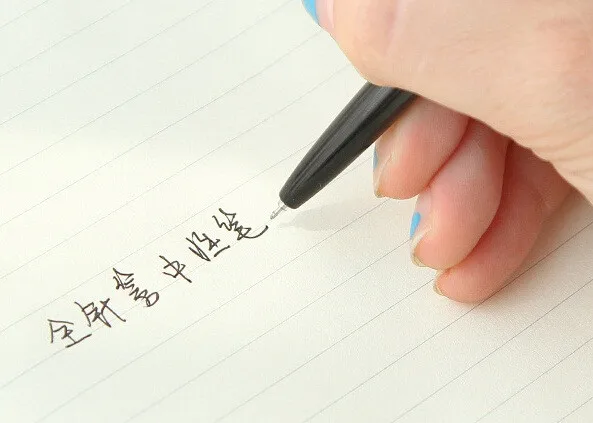 全针管中性笔